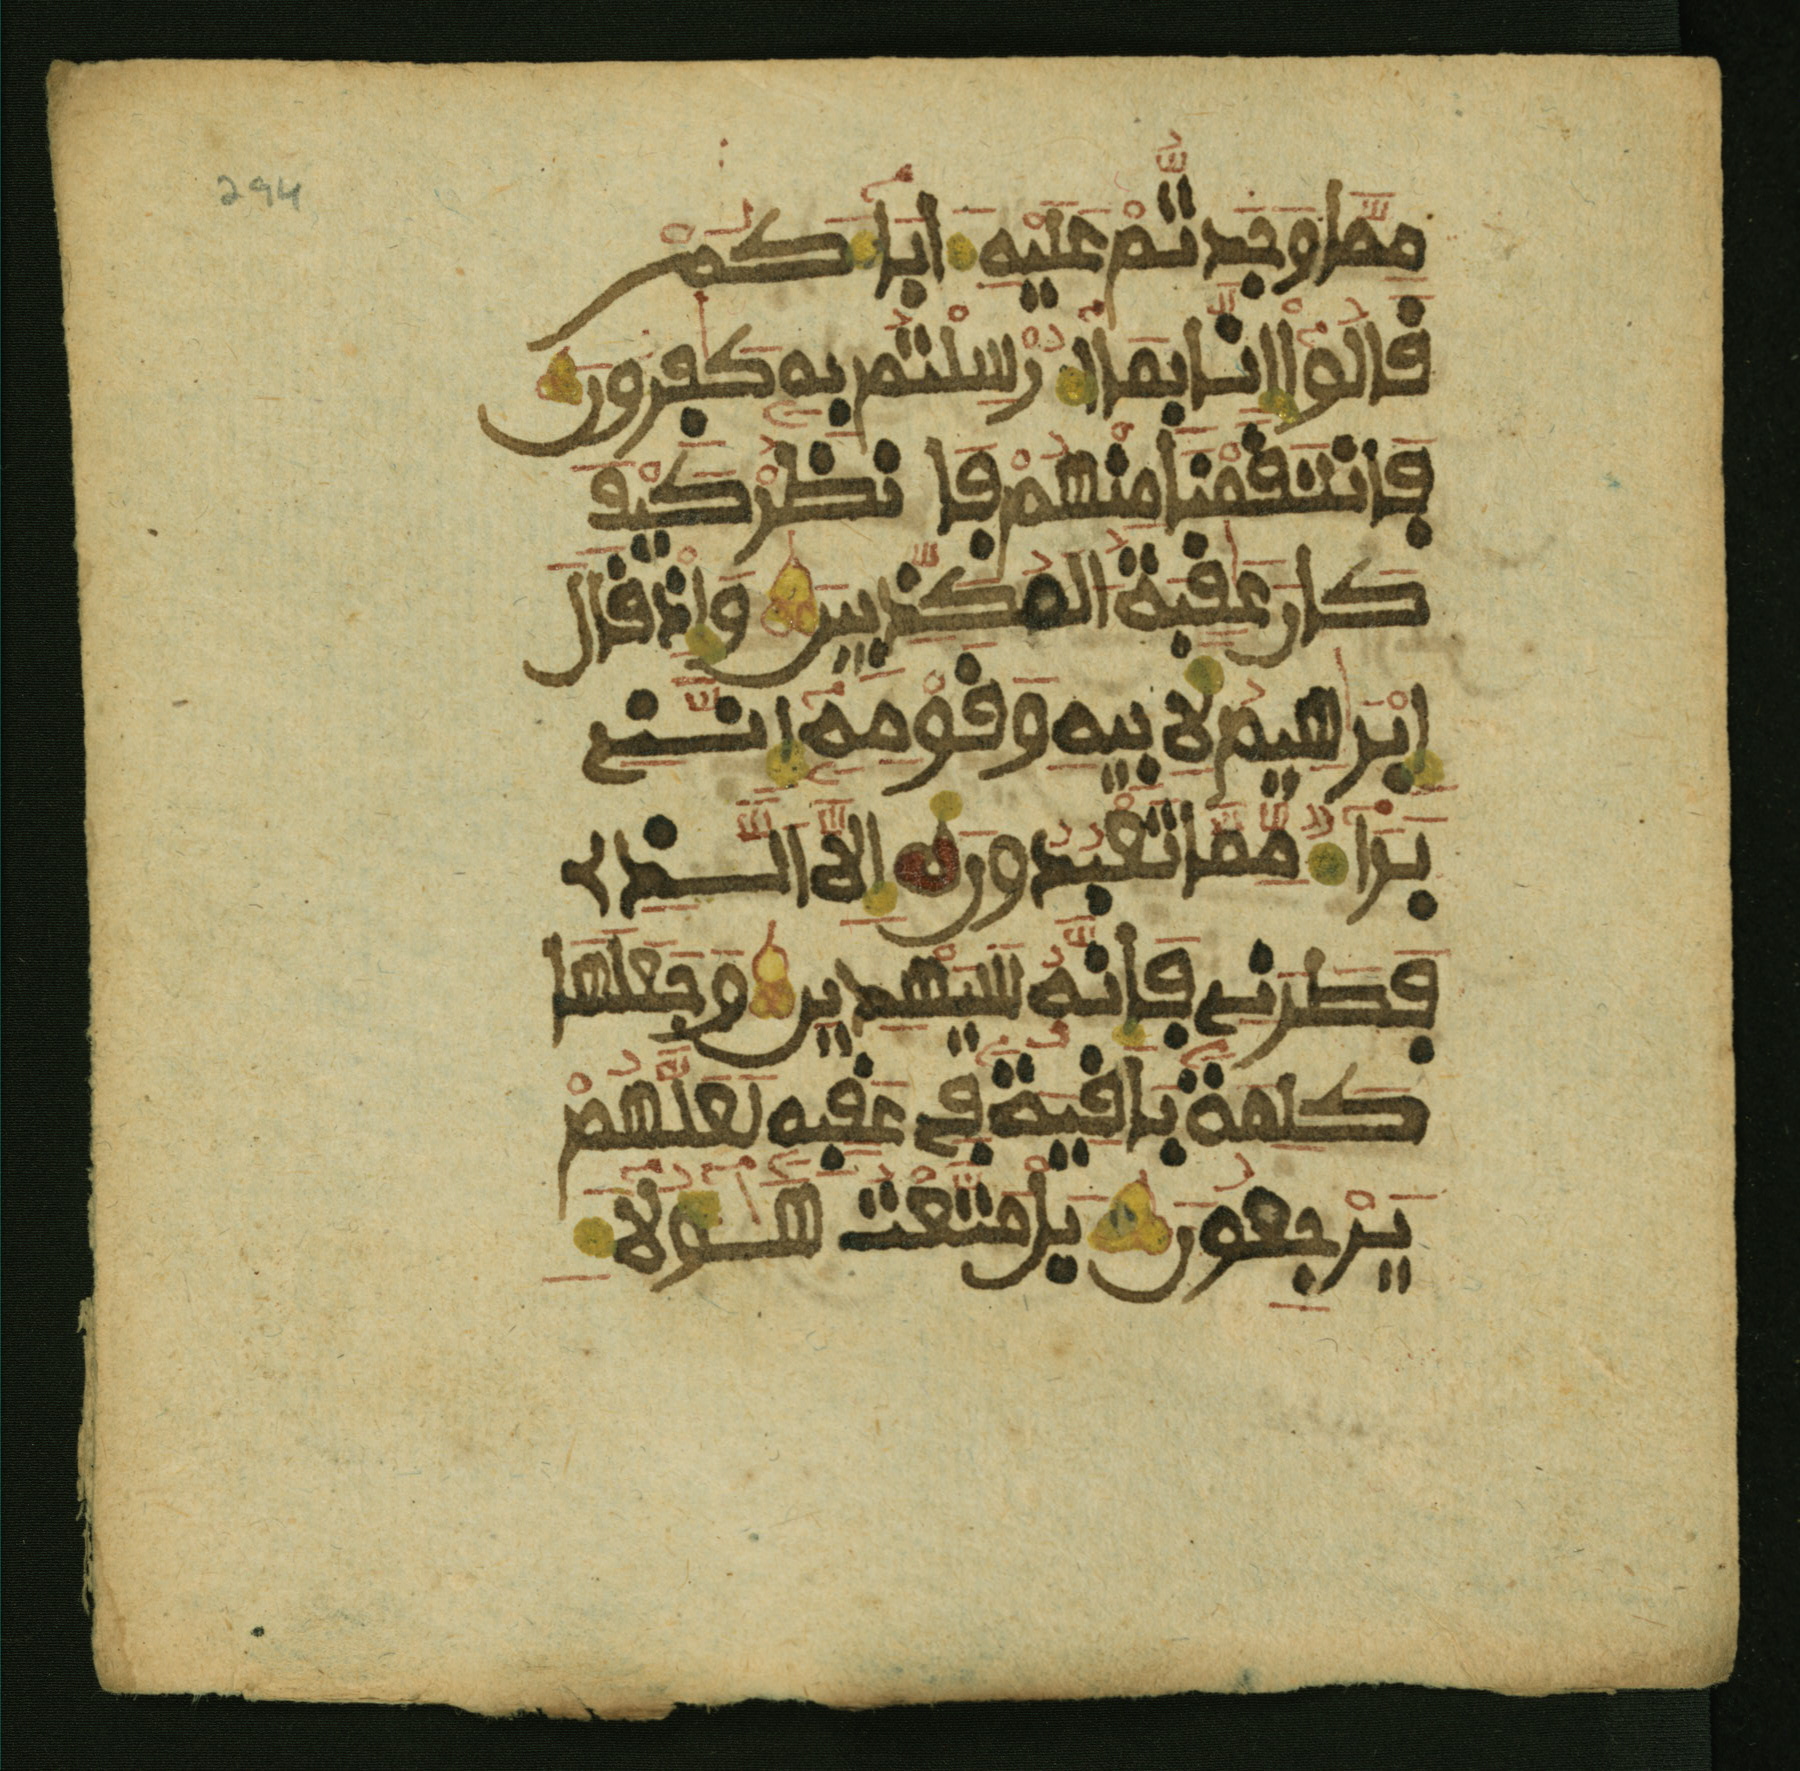 294
مما وجدتم عليه اباكم
قالوا انا بما ارسلتم به كفرون
فانتقمنا منهم فانظر كيف
كان عقبة المكذبين واذ قال
ابرهيم لابيه وقومه انني
برا مما تعبدون الا الذي
فطرني فانه سيهدين وجعلها
كلمة باقية في عقبه لعلهم
يرجعون بل متعت هولا